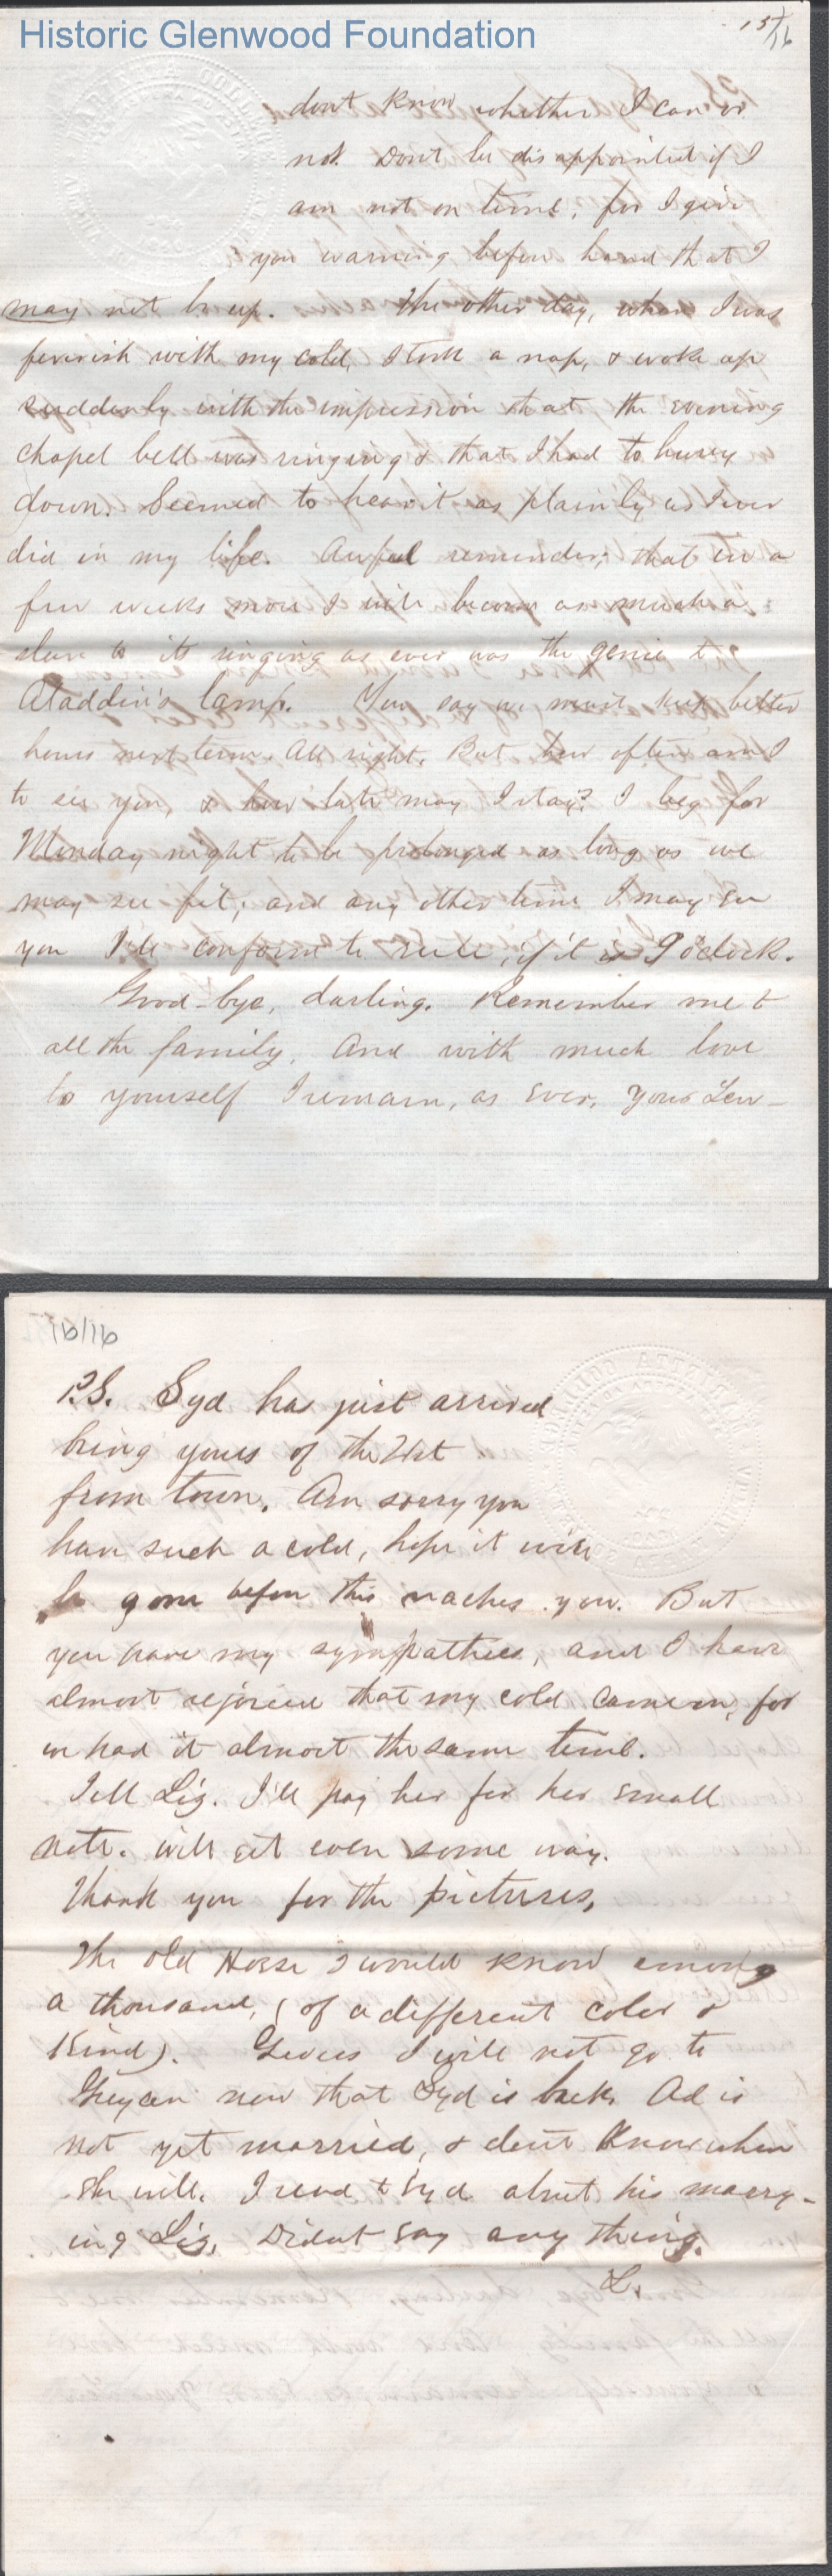 Historic Glenwood Foundation
15/16
don't know whether I can or
not. Don't be disappointed if I
am not on time, for I give
you warning before hand that I
may not be up. The other day, when I was
feverish with my cold, I took a nap, & woke up
suddenly with the impression that the evening
chapel bell was ringing & that I had to hurry
down. Seemed to hear it as plainly as I ever
did in my life. Awful reminder, that in a
few weeks more I will become as much a
slave to its ringing as ever was the genie to
Aladdin's lamp. You say we must keep better
hours next term. All right. But how often am I
to see you, & how late may I stay? I beg for
Monday night to be prolonged as long as we
may see fit; and any other time I may see
you I'll conform to rule, if it is 9 o'clock.
Good-bye, darling. Remember me to
all the family. And with much love
to yourself I remain, as ever, your Lew-
16/16
P.S. Syd has just arrived
bring yours of the 21st
from town. Am sorry you
have such a cold, hope it will
be gone before this reaches you. But
you have my sympathies, and I have
almost rejoiced that my cold came on, for
we had it almost the same time.
Tell Liz. I'll pay her for her small
note. will get even some way.
Thank you for the pictures,
The old Horse I would know among
a thousand, (of a different color &
Kind). Guess I will not go to
now that Syd is back. Ad is
not yet married, & don't Know when
she will. I read to Syd about his marry-
ing Liz. Didnt say any thing.
L.